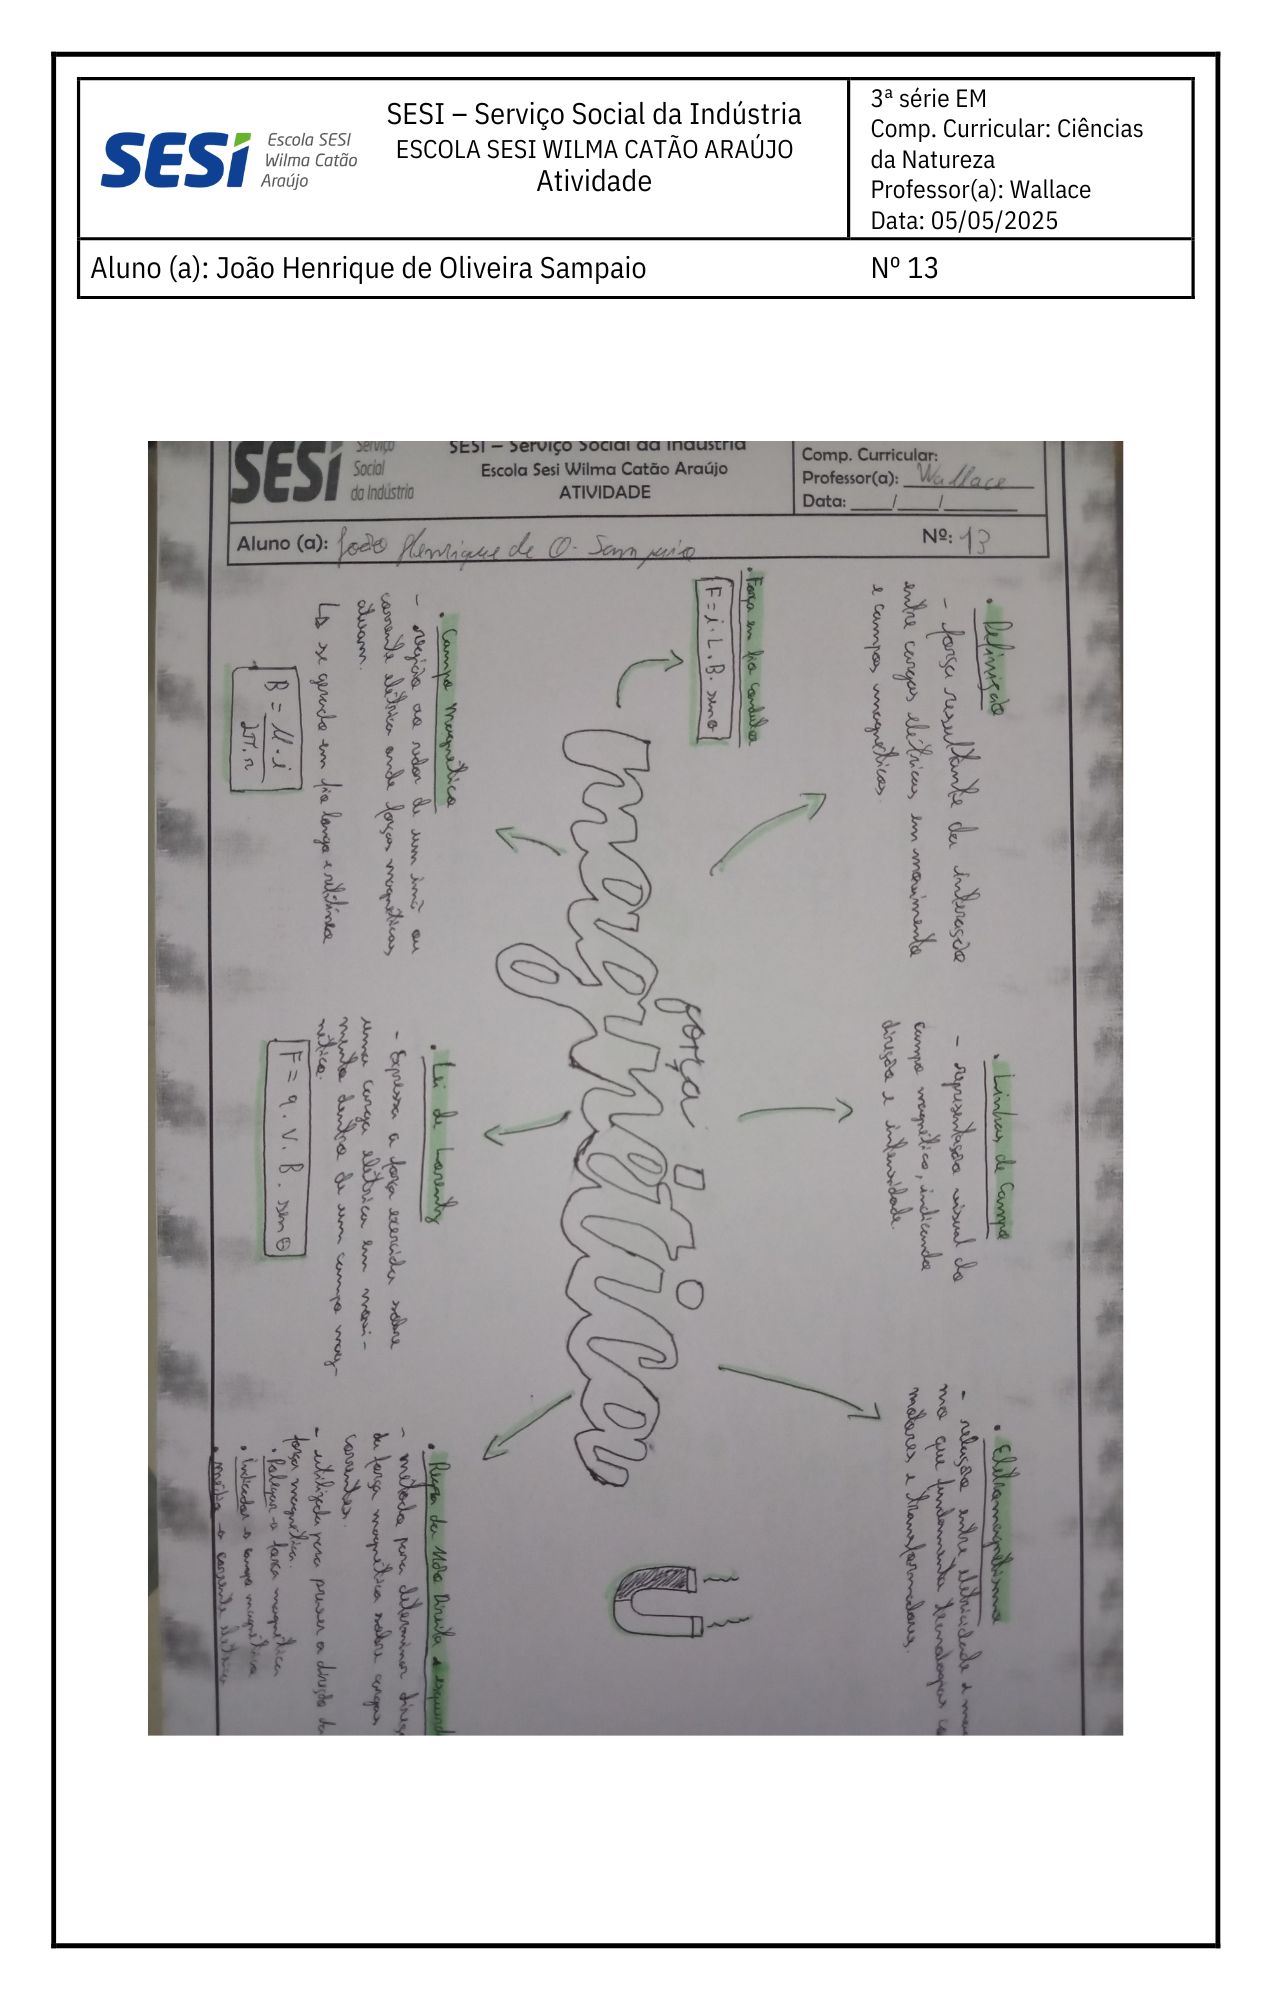 SESI
Escola SESI
Wilma Catão
Araújo
SESI – Serviço Social da Indústria
ESCOLA SESI WILMA CATÃO ARAÚJO
Atividade
3ª série EM
Comp. Curricular: Ciências
da Natureza
Professor(a): Wallace
Data: 05/05/2025
Aluno (a): João Henrique de Oliveira Sampaio
Nº 13
SESI
Serviço
Social
da Indústria
SESI – Serviço Social da Indústria
Escola Sesi Wilma Catão Araújo
ATIVIDADE
Comp. Curricular:
Professor(a): Wallace
Data: ____/____/______
Aluno (a): João Henrique de O. Sampaio
Nº: 13
• Definição
- força resultante da interação
entre cargas elétricas em movimento
e campos magnéticos.
• Linhas de Campo
- representação visual do
campo magnético, indicando
direção e intensidade.
• Eletromagnetismo
- relação entre eletricidade e
mo que fundamenta tecnologias
motores e transformadores.
• Força em fio condutor
F = i. L. B. senθ
força
magnético
• Campo Magnético
- região ao redor de um imã ou
corrente elétrica onde forças magnéticas
atuam.
↳ se gerado em fio longo e retilíneo
B = μ . i
2π. r
• Lei de Lorentz
- Expressa a força exercida sobre
uma carga elétrica em movi-
mento dentro de um campo mag-
nético.
F = q . V. B . sen θ
• Regra da Mão Direita e
- método para determinar
da força magnética sobre cargas
correntes.
- utilizada para prever a direção da
força magnética.
• Polegar → força magnética
• Indicador → campo magnético
• médio → corrente elétrica